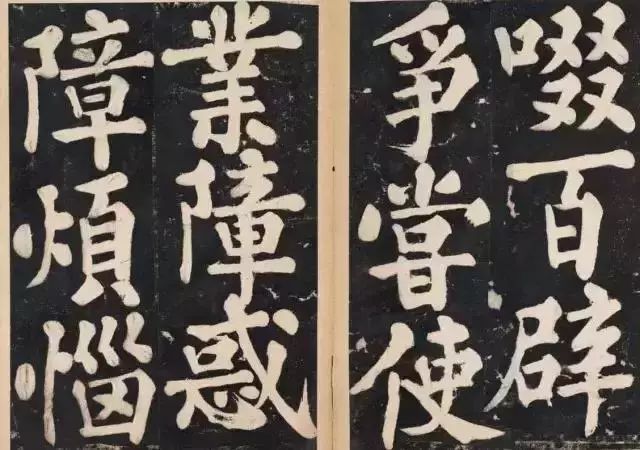 啜百辟
爭嘗使
業障惑
障煩惱